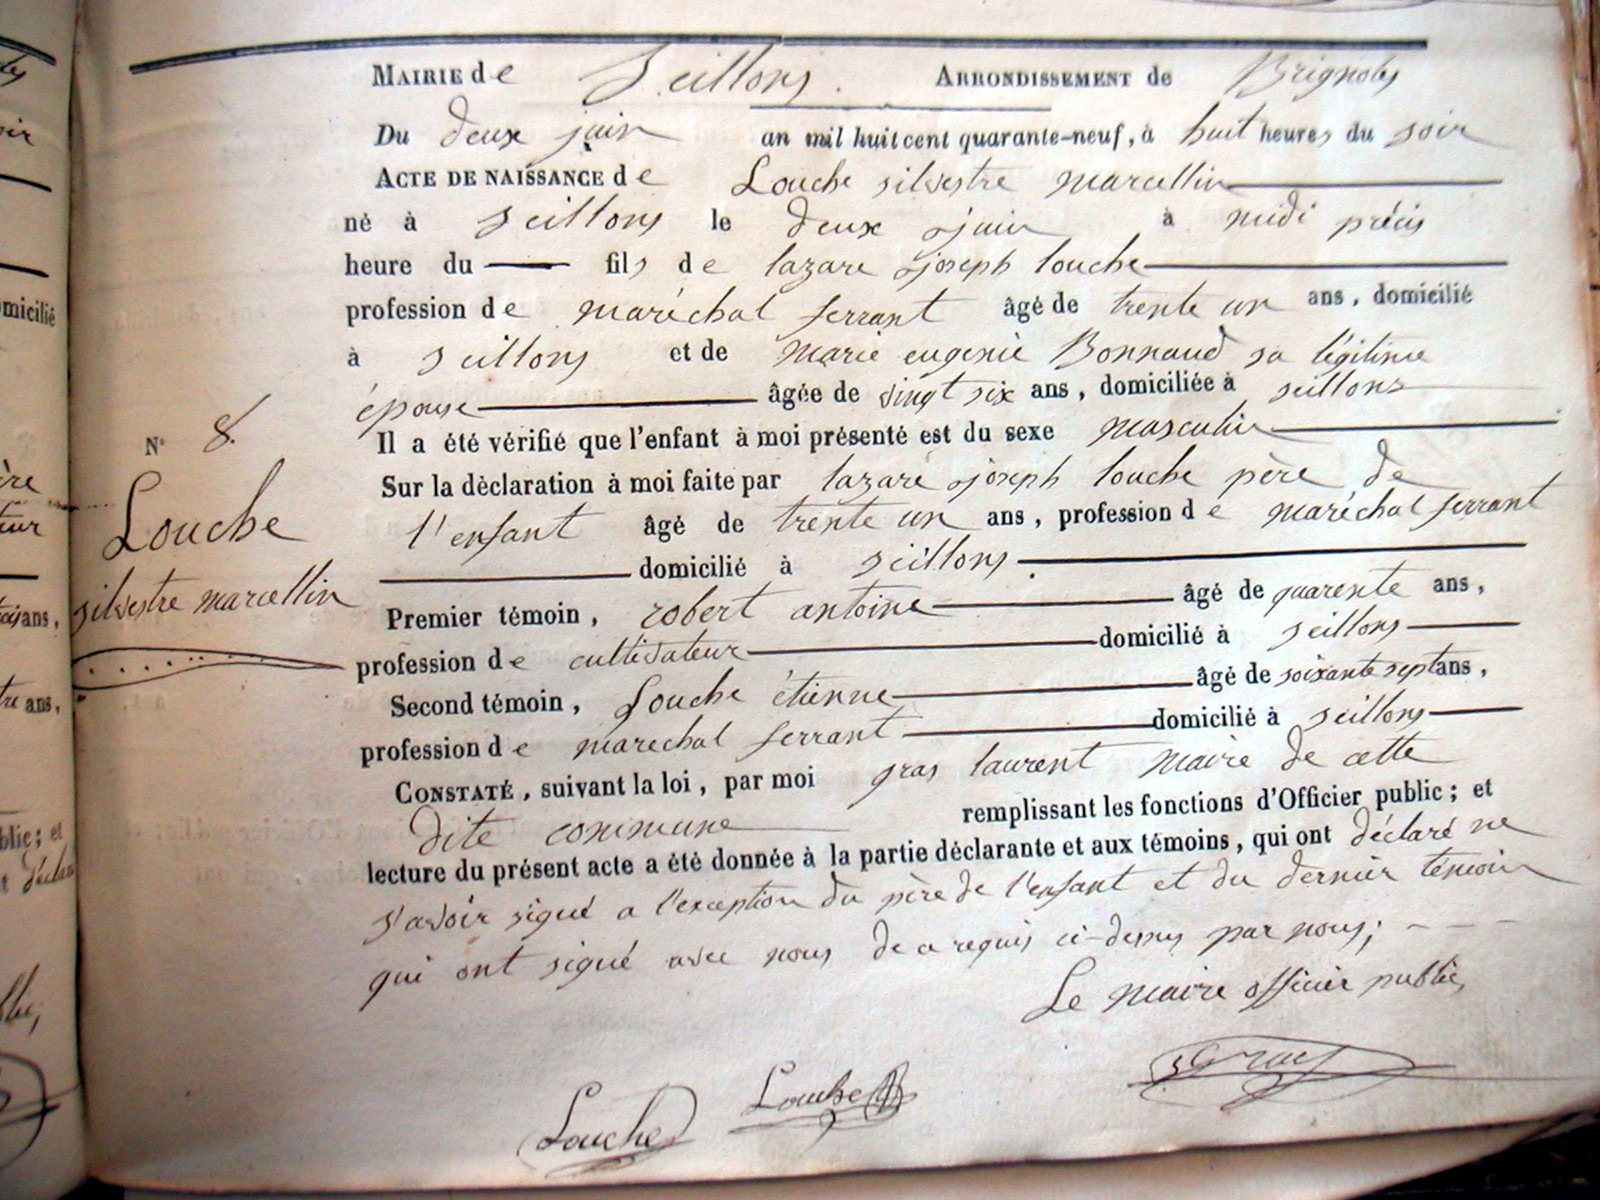 MAIRIE de Seillons. ARRONDISSEMENT de Brignoles
Du deux juin an mil huit cent quarante-neuf, à huit heures du soir
ACTE DE NAISSANCE de Louche silvestre marcellin
né à seillons le deux juin à midi précis
heure du fils de lazare joseph louche
profession de maréchal ferrant âgé de trente un ans, domicilié
à seillons et de marie eugenie Bonnaud sa légitime
épouse âgée de vingt six ans, domiciliée à seillons
Il a été vérifié que l'enfant à moi présenté est du sexe masculin
Sur la déclaration à moi faite par lazare joseph louche père de
l'enfant âgé de trente un ans, profession de maréchal ferrant
domicilié à seillons
Premier témoin, robert antoine âgé de quarente ans,
profession de cultivateur domicilié à seillons
Second témoin, Louche étienne âgé de soixante sept ans,
profession de marechal ferrant domicilié à seillons
CONSTATÉ, suivant la loi, par moi gras laurent maire de cette
dite commune remplissant les fonctions d'Officier public; et
lecture du présent acte a été donnée à la partie déclarante et aux témoins, qui ont déclaré ne
s'avoir signé a l'exception du père de l'enfant et du dernier témoin
qui ont signé avec nous de a requis ci-dessus par nous;
Le maire officier public,
Louche Louche Gras
N° 8.
Louche
silvestre marcellin